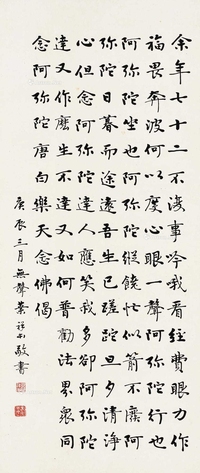 余年七十二不復事吟哦看經費眼力作
福畏奔波何以度心眼一聲阿彌陀行也
阿彌陀坐也阿彌陀縱饒忙似箭不廢阿
彌陀日暮而途遠吾生已蹉跎旦夕清淨
心但念阿彌陀達人應笑我多卻阿彌陀
達又作麼生不達又如何普勸法界眾同
念阿彌陀唐白樂天念佛偈
庚辰三月無聲葉敬書